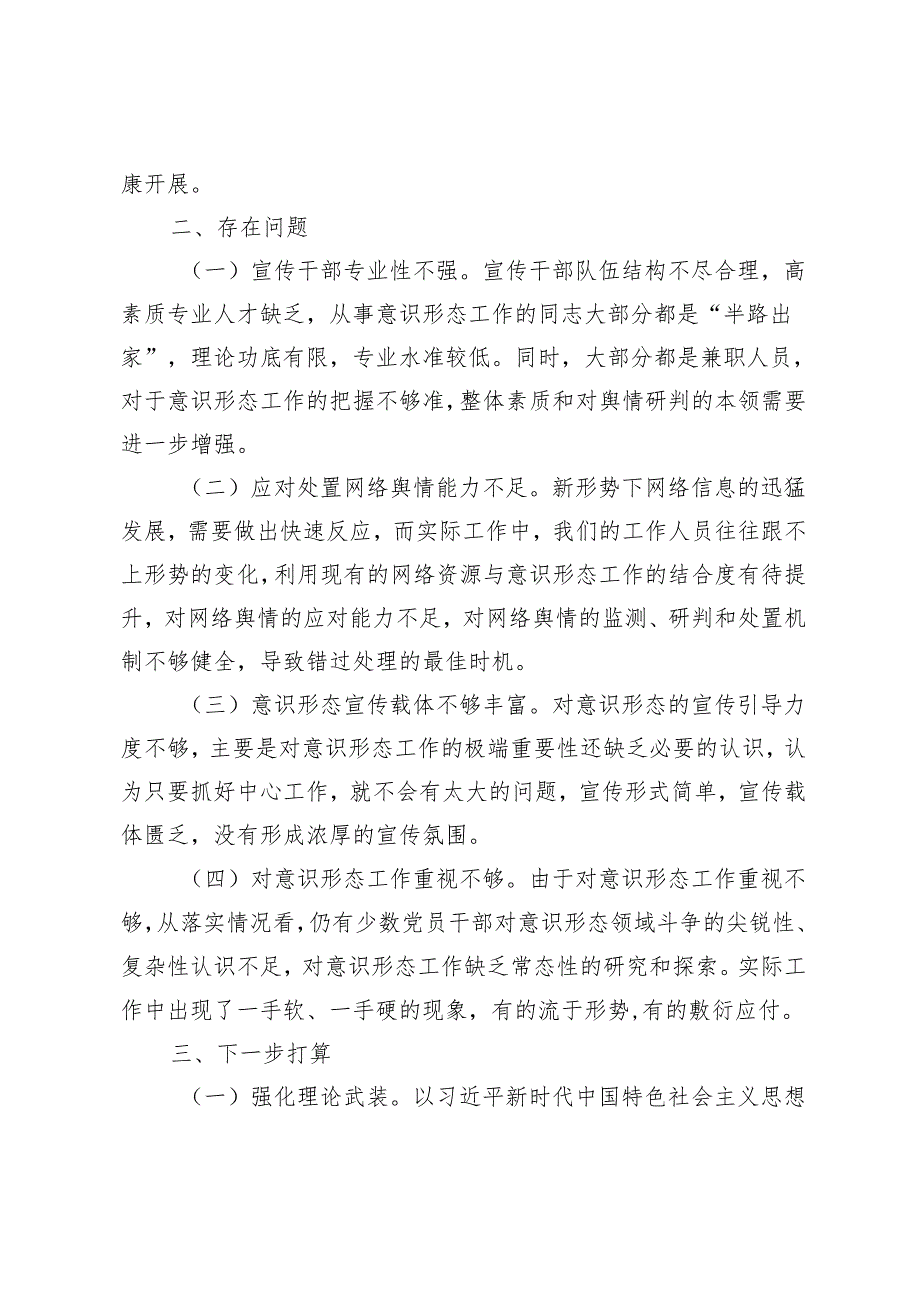 康开展。
二、存在问题
（一）宣传干部专业性不强。宣传干部队伍结构不尽合理，高
素质专业人才缺乏，从事意识形态工作的同志大部分都是“半路出
家”，理论功底有限，专业水准较低。同时，大部分都是兼职人员，
对于意识形态工作的把握不够准，整体素质和对舆情研判的本领需要
进一步增强。
（二）应对处置网络舆情能力不足。新形势下网络信息的迅猛
发展，需要做出快速反应，而实际工作中，我们的工作人员往往跟不
上形势的变化，利用现有的网络资源与意识形态工作的结合度有待提
升，对网络舆情的应对能力不足，对网络舆情的监测、研判和处置机
制不够健全，导致错过处理的最佳时机。
（三）意识形态宣传载体不够丰富。对意识形态的宣传引导力
度不够，主要是对意识形态工作的极端重要性还缺乏必要的认识，认
为只要抓好中心工作，就不会有太大的问题，宣传形式简单，宣传载
体匮乏，没有形成浓厚的宣传氛围。
（四）对意识形态工作重视不够。由于对意识形态工作重视不
够，从落实情况看，仍有少数党员干部对意识形态领域斗争的尖锐性、
复杂性认识不足，对意识形态工作缺乏常态性的研究和探索。实际工
作中出现了一手软、一手硬的现象，有的流于形势,有的敷衍应付。
三、下一步打算
（一）强化理论武装。以习近平新时代中国特色社会主义思想